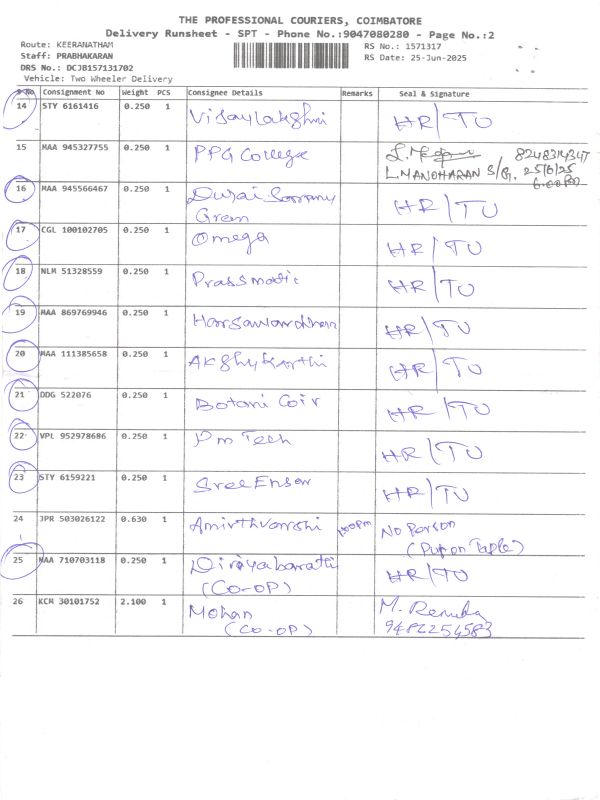 THE PROFESSIONAL COURIERS, COIMBATORE
Delivery Runsheet - SPT - Phone No.:9047080280 - Page No.:2
Route: KEERANATHAM
RS No.: 1571317
Staff: PRABHAKARAN
RS Date: 25-Jun-2025
DRS No.: DCJB157131702
Vehicle: Two Wheeler Delivery
S No Consignment No Weight PCS Consignee Details Remarks Seal & Signature
14 STY 6161416 0.250 1 Vijaylakshmi HR/TU
15 MAA 945327755 0.250 1 PPG College 8248314347
L.MANOHARAN S/G. 25/6/25
6.00 pm
16 MAA 945566467 0.250 1 Durai Sammy HR/TU
Green
17 CGL 100102705 0.250 1 Omega HR/TU
18 NLM 51328559 0.250 1 Prassmatic HR/TU
19 MAA 869769946 0.250 1 HR/TU
20 MAA 111385658 0.250 1 Akshykarthi HR/TU
21 DDG 522076 0.250 1 Botani Coir HR/TU
22 VPL 952978686 0.250 1 Pm Tech HR/TU
23 STY 6159221 0.250 1 Sree HR/TU
24 JPR 503026122 0.630 1 Amirthvarshi No Person
(Put on Table)
25 MAA 710703118 0.250 1 HR/TU
(CO-OP)
26 KCM 30101752 2.100 1 Mohan M. Renuka
(CO-OP) 9482254583